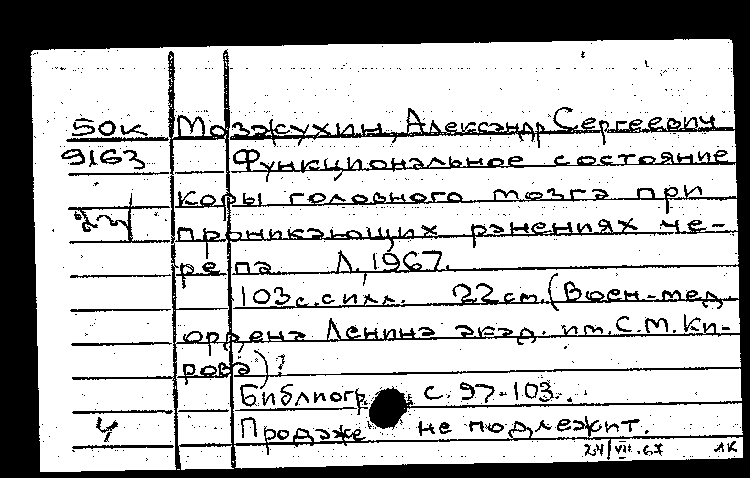 50к Мозжухин, Александр Сергеевич
9163 Функциональное состояние
коры головного мозга при
проникающих ранениях че-
репа Л., 1967.
103 с. с илл. 22 см. (Воен.-мед.
ордена Ленина акад. им. С. М. Ки-
рова)?
Библиогр. с. 97-103.
Ч Продаже не подлежит.
24/VII.67 ЛК